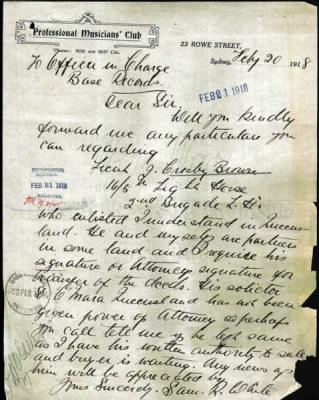 Professional Musicians' Club
Phones: 9030 and 9037 City.
23 ROWE STREET,
Sydney, Feby 20 1918
To Officer in Charge
Base Records.
Dear Sir,
FEB 21 1918
Will you kindly
forward me any particulars you
can regarding
Lieut J. Crosby Brown
16/5th Light Horse
FEB 21 1918
2nd Brigade L. H.
who enlisted I understand in Queens-
land. He and myself are partners
in some land and I require his
signature or Attorneys signature for
transfer of the deeds. His solicitor
O'Mara Queensland has not been
given power of Attorney so perhaps
you can tell me if he left same
as I have his written authority to sell
and buyer is waiting. Any news of
him will be appreciated by
Yours Sincerely. Sam. R. White